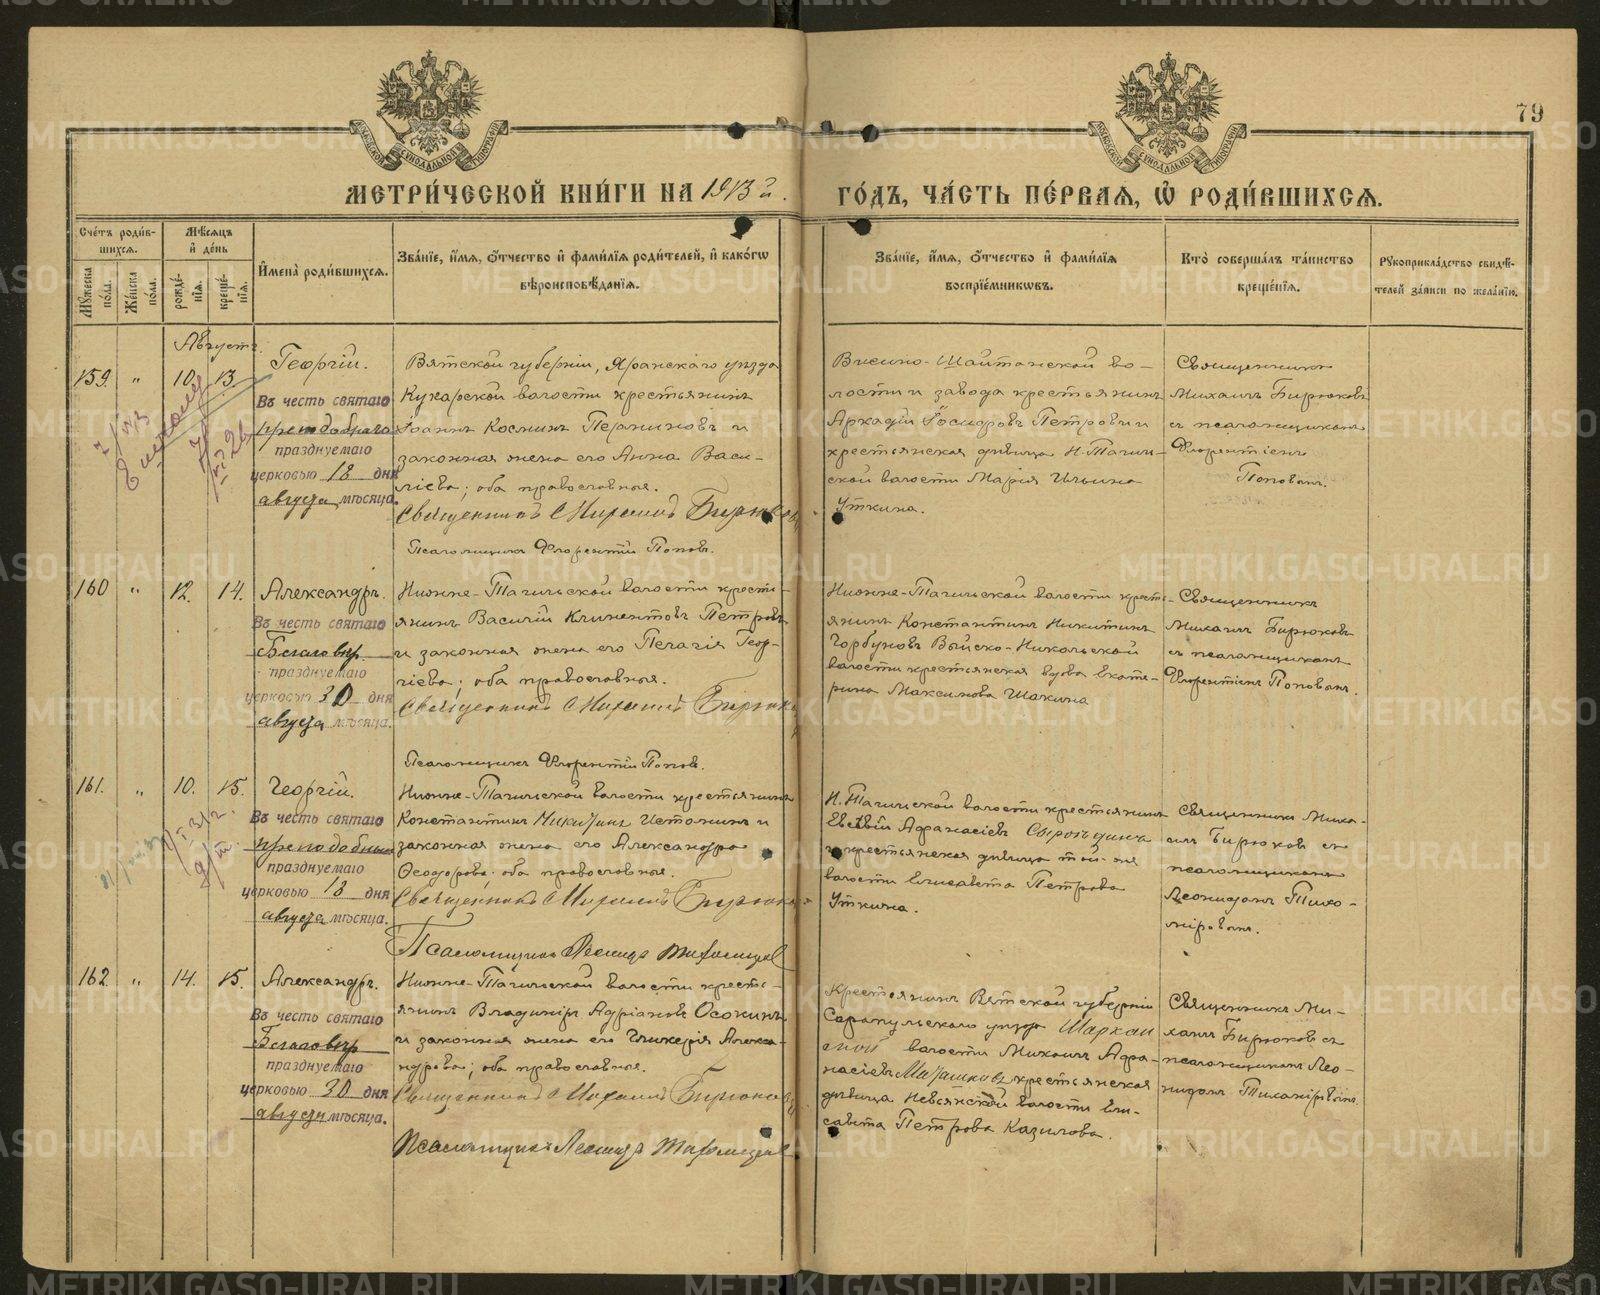 79
МОСКОВСКОЙ СѴНОДАЛЬНОЙ ТИПОГРАФІИ
МОСКОВСКОЙ СѴНОДАЛЬНОЙ ТИПОГРАФІИ
МЕТРИ́ЧЕСКОЙ КНИ́ГИ НА 1913 й.
ГО́ДЪ, ЧА́СТЬ ПЕ́РВАѦ, Ѡ҆ РОДИ́ВШИХСѦ.
Сче́тъ роди́в-
шихсѧ.
Мꙋ́жеска по́ла.
Же́нска по́ла.
Мѣ́сѧцъ и҆ де́нь
рожде́-
нїѧ.
креще́-
нїѧ.
И҆мена̀ роди́вшихсѧ.
Зва́нїе, и҆́мѧ, ѻ҆́тчество и҆ фами́лїѧ роди́телей, и҆ како́гѡ
вѣроисповѣ́данїѧ.
Зва́нїе, и҆́мѧ, ѻ҆́тчество и҆ фами́лїѧ
воспрїе́мникѡвъ.
Кто̀ соверша́лъ та́инство
креще́нїѧ.
Рꙋкоприкла́дство свидѣ́-
телей за́писи по жела́нїю.
Августъ.
159. " 10. 13.
Георгій.
Въ честь святаго
преподобнаго
празднуемаго
церковью 18 дня
августа мѣсяца.
Вятской губерніи, Яранскаго уѣзда
Кукарской волости крестьянинъ
Іоаннъ Косминъ Перминовъ и
законная жена его Анна Васи-
лієва; оба православные.
Священникъ Михаилъ Бирюковъ
Псаломщикъ Флорентій Поповъ.
Висимо-Шайтанской во-
лости и завода крестьянинъ
Аркадій Ѳедоровъ Петровъ и
крестьянская дѣвица Н.-Тагиль-
ской волости Марія Ильина
Уткина.
Священникъ
Михаилъ Бирюковъ
съ псаломщикомъ
Флорентіемъ
Поповымъ.
160 " 12. 14.
Александръ.
Въ честь святаго
Благовѣр.
празднуемаго
церковью 30 дня
августа мѣсяца.
Нижне-Тагильской волости кресть-
янинъ Василій Климентовъ Петровъ
и законная жена его Пелагія Геор-
гієва; оба православные.
Священникъ Михаилъ Бирюковъ
Псаломщикъ Флорентій Поповъ.
Нижне-Тагильской волости кресть-
янинъ Константинъ Никитинъ
Горбуновъ Выйско-Никольской
волости крестьянская вдова Екате-
рина Максимова Шакина
Священникъ
Михаилъ Бирюковъ
съ псаломщикомъ
Флорентіемъ Поповымъ.
161. " 10. 15.
Георгій.
Въ честь святаго
преподобнаго
празднуемаго
церковью 18 дня
августа мѣсяца.
Нижне-Тагильской волости крестьянинъ
Константинъ Никитинъ Истоминъ и
законная жена его Александра
Ѳеодорова; оба православные.
Священникъ Михаилъ Бирюковъ
Псаломщикъ Леонидъ Тихомировъ
Н.-Тагильской волости крестьянинъ
Евсевій Аѳанасіевъ
и крестьянская дѣвица той-же
волости Елисавета Петрова
Уткина.
Священникъ Миха-
илъ Бирюковъ съ
псаломщикомъ
Леонидомъ Тихо-
мировымъ.
162. " 14. 15.
Александръ.
Въ честь святаго
Благовѣр
празднуемаго
церковью 30 дня
августа мѣсяца.
Нижне-Тагильской волости кресть-
янинъ Владиміръ Адріановъ Осокинъ
и законная жена его Гликерія Алекса-
ндрова; оба православные.
Священникъ Михаилъ Бирюковъ
Псаломщикъ Леонидъ Тихомировъ
Крестьянинъ Вятской губерніи
Сарапульскаго уѣзда Шаркан
ской волости Михаилъ Аѳа-
насіевъ крестьянская
дѣвица Невьянской волости Ели-
савета Петрова Казилова.
Священникъ Ми-
хаилъ Бирюковъ съ
псаломщикомъ Лео-
нидомъ Тихомировымъ.
METRIKI.GASO-URAL.RU